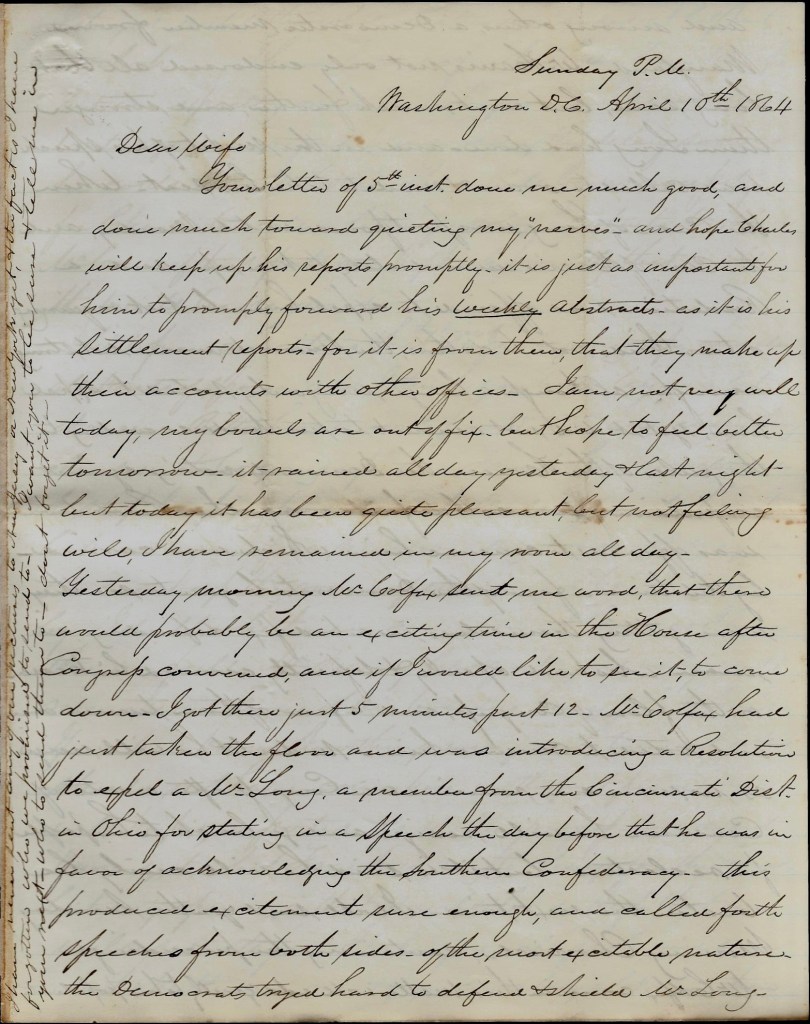 Sunday P.M.
Washington D.C. April 10th 1864
Dear Wife
Your letter of 5th inst. done me much good, and
done much toward quieting my "nerves" - and hope Charles
will keep up his reports promptly - it is just as important for
him to promptly forward his weekly abstracts - as it is his
settlement reports - for it is from them, that they make up
their accounts with other offices - I am not very well
today, my bowels are out of fix - but hope to feel better
tomorrow - it rained all day yesterday & last night
but today it has been quite pleasant, but not feeling
well, I have remained in my room all day -
Yesterday morning Mr Colfax send me word, that there
would probably be an exciting time in the House after
Congress convened, and if I would like to see it, to come
down - I got there just 5 minutes past 12 - Mr Colfax had
just taken the floor and was introducing a Resolution
to expel a Mr Long, a member from the Cincinnati Dist.
in Ohio for stating in a speech the day before that he was in
favor of acknowledging the Southern Confederacy - this
produced excitement sure enough, and called forth
speeches from both sides - of the most excitable nature -
the Democrats tryed hard to defend & shield Mr Long -
I have never sent any of your pictures to any & the fact is I have
forgotten who we promised to send to - I want you to be sure & tell me in
your next - who to send them to - don't forget it -